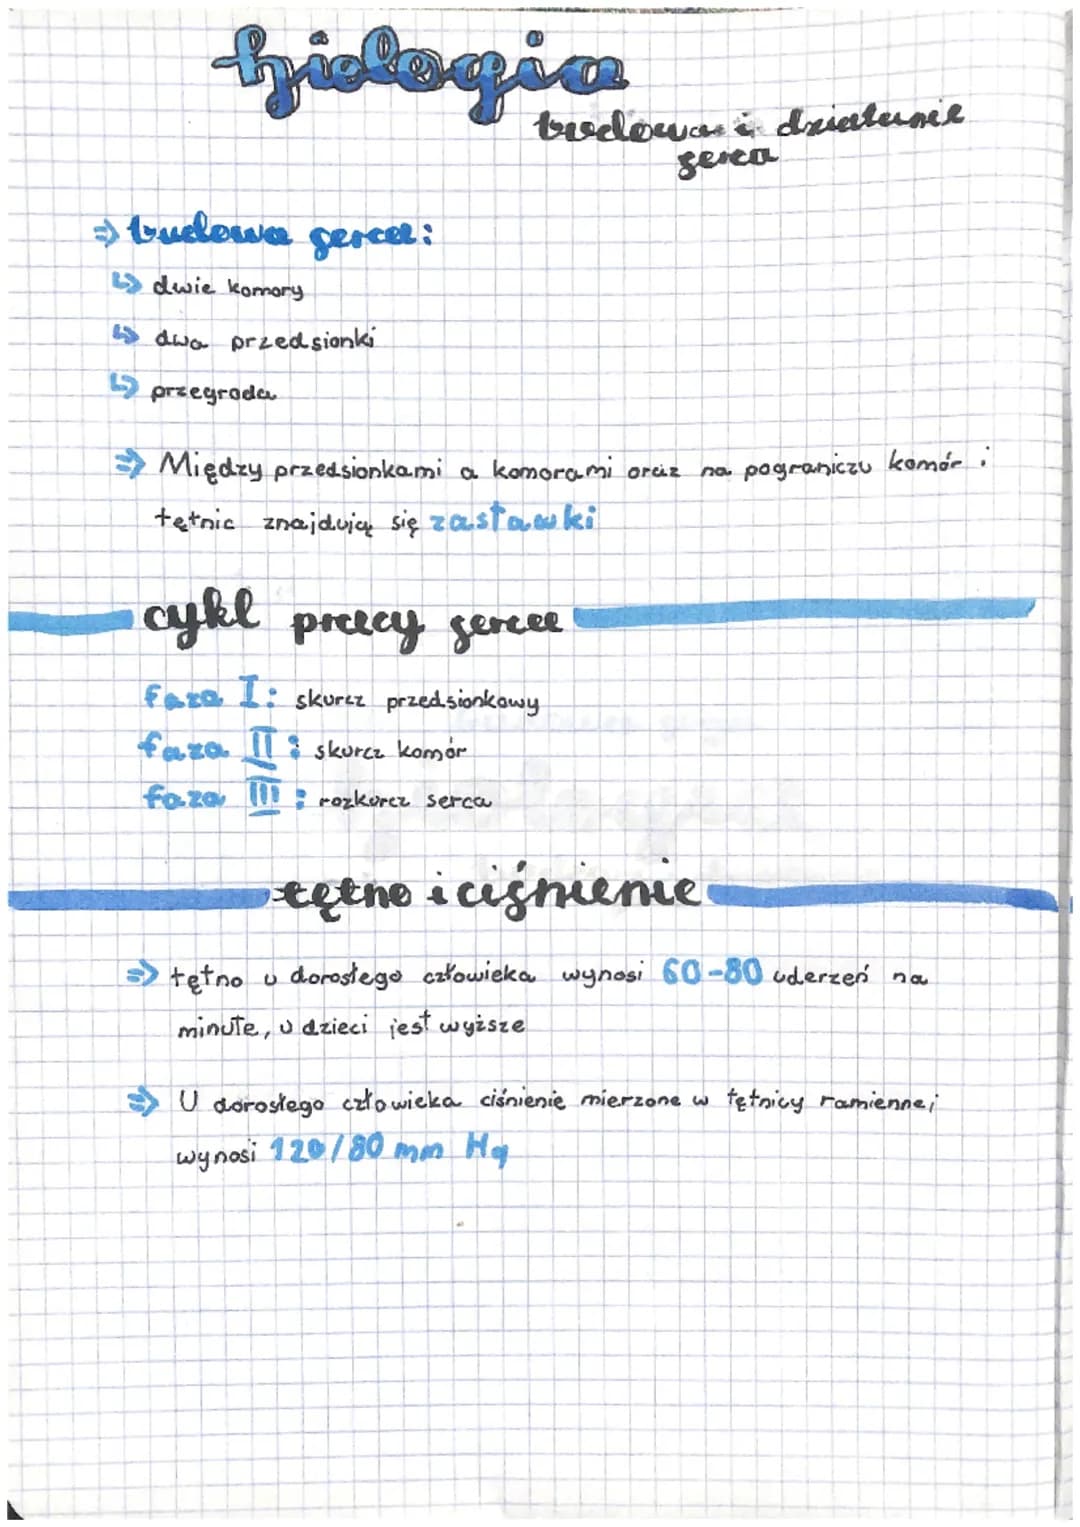 biologia
budowa i działanie
serca
⇒ budowa serca:
↳ dwie komory
↳ dwa przedsionki
↳ przegroda
⇒ Między przedsionkami a komorami oraz na pograniczu komór i
tętnic znajdują się zastawki
cykl pracy serca
faza I: skurcz przedsionkowy
faza II: skurcz komór
faza III: rozkurcz serca
tętno i ciśnienie
⇒ tętno u dorosłego człowieka wynosi 60-80 uderzeń na
minute, u dzieci jest wyższe
⇒ U dorosłego człowieka ciśnienie mierzone w tętnicy ramiennej
wynosi 120/80 mm Hg